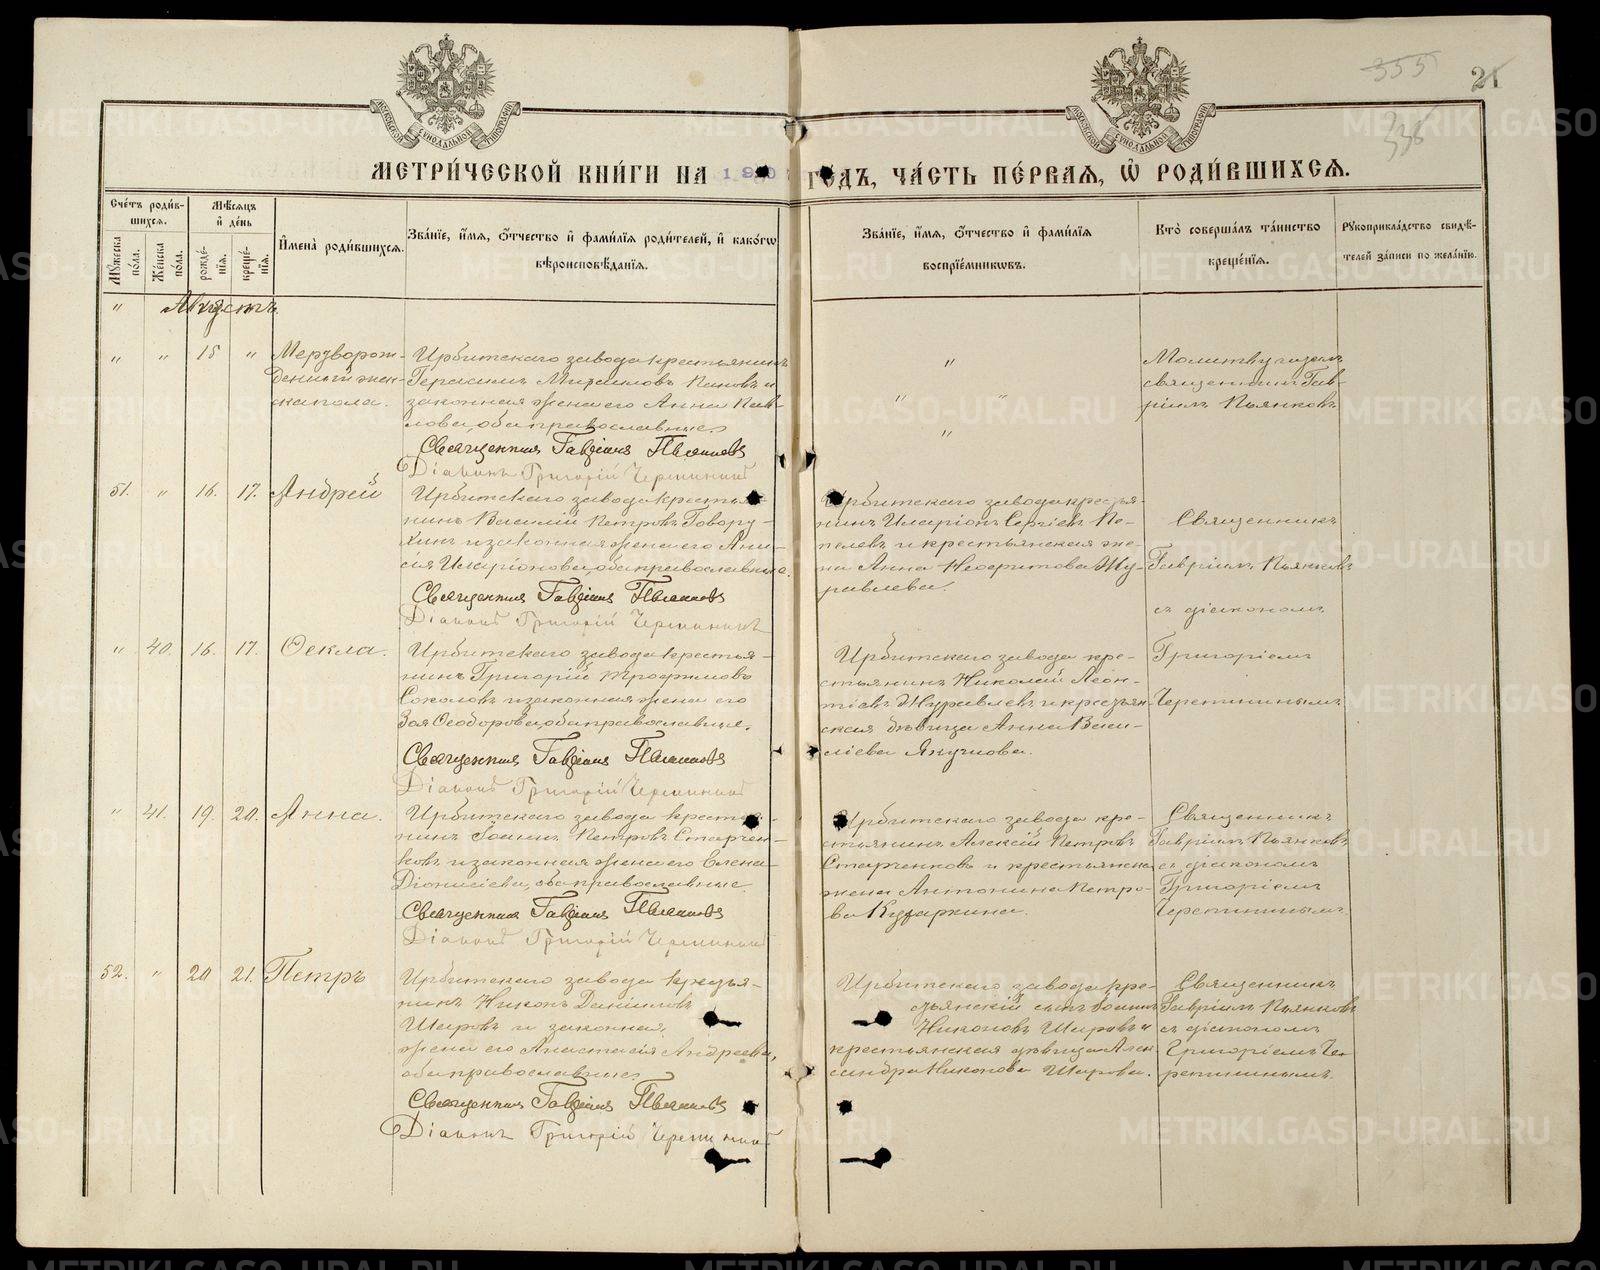 355
21
336
МОСКОВСКОЙ СѴНОДАЛЬНОЙ ТИПОГРАФІИ
МОСКОВСКОЙ СѴНОДАЛЬНОЙ ТИПОГРАФІИ
МЕТРИ́ЧЕСКОЙ КНИ́ГИ НА 190 ГО́ДЪ, ЧА́СТЬ ПЕ́РВАѦ, Ѡ҆ РОДИ́ВШИХСѦ.
Сче́тъ роди́в-
шихсѧ.
Мꙋ́жеска по́ла.
Же́нска по́ла.
Мѣ́сѧцъ
и҆ де́нь
рожде́-
нїѧ.
креще́-
нїѧ.
И҆мена̀ роди́вшихсѧ.
Зва́нїе, и҆́мѧ, ѻ҆́тчество и҆ фами́лїѧ роди́телей, и҆ како́гѡ
вѣроисповѣ́данїѧ.
Зва́нїе, и҆́мѧ, ѻ҆́тчество и҆ фами́лїѧ
воспрїе́мникѡвъ.
Кто̀ соверша́лъ та́инство
креще́нїѧ.
Рꙋкоприкла́дство свидѣ́-
телей за́писи по жела́нїю.
" Августъ.
" " 15 "
Мертворож-
денный жен-
скапола.
Ирбитскаго завода крестьянинъ
Герасимъ Пановъ и
законная жена его Анна Пав-
лова, оба православные.
Священникъ Гавріилъ Пьянковъ
Діаконъ Григорій Черепининъ
"
" "
"
Молитву
священникъ Гав-
ріилъ Пьянковъ
51. " 16. 17. Андрей
Ирбитскаго завода крестья-
нинъ Василій Петровъ Говору-
хинъ и законная жена его Ани-
сія Иларіонова, оба православные.
Священникъ Гавріилъ Пьянковъ
Діаконъ Григорій Черепининъ
Ирбитскаго завода крестья-
нинъ Иларіонъ Сергіевъ Пе-
пелевъ и крестьянская же-
на Анна Неофитова Жу-
равлева.
Священникъ
Гавріилъ Пьянковъ
съ діакономъ
" 40. 16. 17. Ѳекла.
Ирбитскаго завода крестья-
нинъ Григорій Трофимовъ
Соколовъ и законная жена его
Зоя Ѳеодорова, оба православные.
Священникъ Гавріилъ Пьянковъ
Діаконъ Григорій Черепининъ
Ирбитскаго завода кре-
стьянинъ Николай Леон-
тіевъ Журавлевъ и крестьян-
ская дѣвица Анна Васи-
ліева
Григоріемъ
Черепининымъ.
" 41. 19. 20. Анна.
Ирбитскаго завода крестья-
нинъ Іоаннъ Петровъ Старчен-
ковъ и законная жена его Елена
Діонисіева, оба православные.
Священникъ Гавріилъ Пьянковъ
Діаконъ Григорій Черепининъ
Ирбитскаго завода кре-
стьянинъ Алексій Петровъ
Старченковъ и крестьянска
жена Антонина Петро-
ва
Священникъ
Гавріилъ Пьянковъ
съ діакономъ
Григоріемъ
Черепининымъ.
52. " 20 21. Петръ
Ирбитскаго завода крестья-
нинъ Никонъ Даніиловъ
Шаровъ и законная
жена его Анастасія Андреева,
оба православные
Священникъ Гавріилъ Пьянковъ
Діаконъ Григорій Черепининъ
Ирбитскаго завода кре-
стьянскій сынъ Іоаннъ
Никоновъ Шаровъ и
крестьянская дѣвица Алек-
сандра Никонова Шарова.
Священникъ
Гавріилъ Пьянковъ
съ діакономъ
Григоріемъ Че-
репининымъ.
METRIKI.GASO-URAL.RU